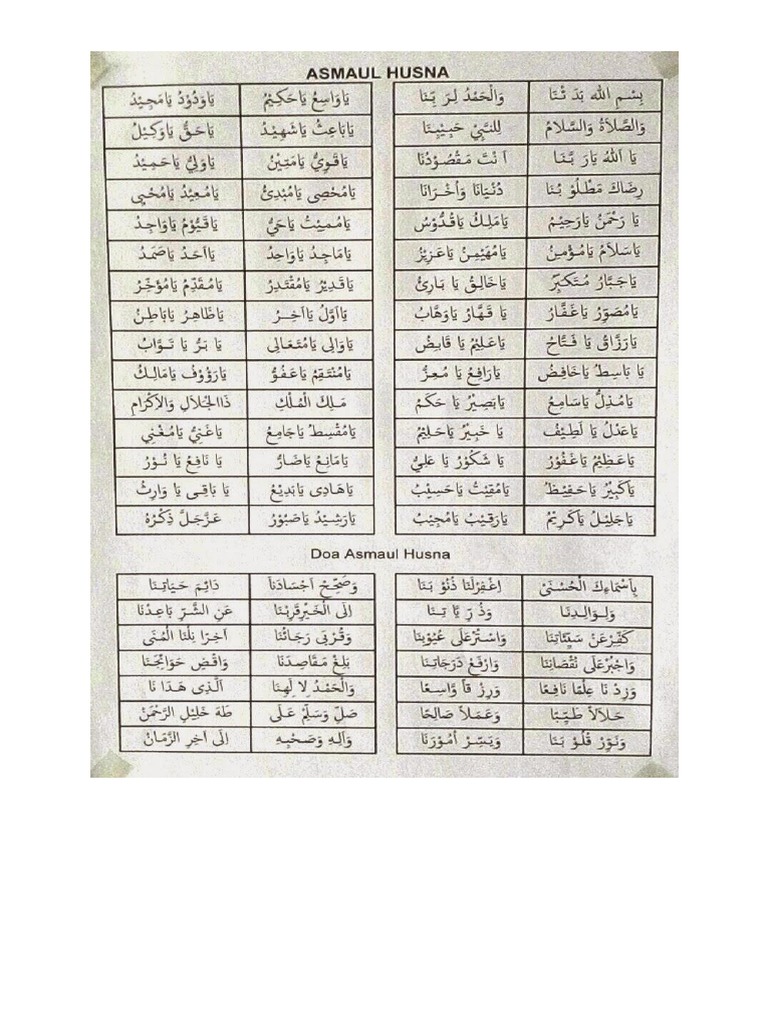 ASMAUL HUSNA
بِسْمِ اللهِ بَدَ ثْنَا وَالْحَمْدُ لِرَ بِّنَا
وَالصَّلَاةُ وَالسَّلَامُ لِلنَّبِيِّ حَبِيْبِنَا
يَا اَللهُ يَارَ بَّنَا اَنْتَ مَقْصُوْدُنَا
رِضَاكَ مَطْلُوْ بُنَا دُنْيَانَا وَأُخْرَانَا
يَا رَحْمٰنُ يَارَحِيْمُ يَامَلِكُ يَاقُدُّوْسُ
يَاسَلَامُ يَامُؤْمِنُ يَامُهَيْمِنُ يَاعَزِيْزُ
يَاجَبَّارُ مُتَكَبِّرُ يَاخَالِقُ يَا بَارِئُ
يَامُصَوِّرُ يَاغَفَّارُ يَا قَهَّارُ يَاوَهَّابُ
يَارَزَّاقُ يَا فَتَّاحُ يَاعَلِيْمُ يَا قَابِضُ
يَا بَاسِطُ يَاخَافِضُ يَارَافِعُ يَا مُعِزُّ
يَامُذِلُّ يَاسَامِعُ يَابَصِيْرُ يَا حَكَمُ
يَاعَدْلُ يَا لَطِيْفُ يَا خَبِيْرُ يَاحَلِيْمُ
يَاعَظِيْمُ يَاغَفُوْرُ يَا شَكُوْرُ يَا عَلِيُّ
يَاكَبِيْرُ يَاحَفِيْظُ يَامُقِيْتُ يَاحَسِيْبُ
يَاجَلِيْلُ يَاكَرِيْمُ يَارَقِيْبُ يَامُجِيْبُ
يَاوَاسِعُ يَاحَكِيْمُ يَاوَدُوْدُ يَامَجِيْدُ
يَابَاعِثُ يَاشَهِيْدُ يَاحَقُّ يَاوَكِيْلُ
يَاقَوِيُّ يَامَتِيْنُ يَاوَلِيُّ يَاحَمِيْدُ
يَامُحْصِى يَامُبْدِئُ يَامُعِيْدُ يَامُحْيِى
يَامُمِيْتُ يَاحَيُّ يَاقَيُّوْمُ يَاوَاجِدُ
يَامَاجِدُ يَاوَاحِدُ يَااَحَدُ يَاصَمَدُ
يَاقَدِيْرُ يَامُقْتَدِرُ يَامُقَدِّمُ يَامُؤَخِّرُ
يَااَوَّلُ يَااَخِرُ يَاظَاهِرُ يَابَاطِنُ
يَاوَالِى يَامُتَعَالِى يَا بَرُّ يَا تَوَّابُ
يَامُنْتَقِمُ يَاعَفُوُّ يَارَؤُوْفُ يَامَالِكُ
مَلِكَ الْمُلْكِ ذَاالْجَلَالِ وَالْاِكْرَامِ
يَامُقْسِطُ يَاجَامِعُ يَاغَنِيُّ يَامُغْنِي
يَامَانِعُ يَاضَارُّ يَا نَافِعُ يَا نُوْرُ
يَاهَادِى يَابَدِيْعُ يَا بَاقِى يَا وَارِثُ
يَارَشِيْدُ يَاصَبُوْرُ عَزَّجَلَّ ذِكْرُهُ
Doa Asmaul Husna
بِاَسْمَاءِكَ الْحُسْنَىْ اِغْفِرْلَنَا ذُنُوْ بَنَا
وَلِوَالِدِنَا وَذُ رِّ يَّا تِنَا
كَفِّرْعَنْ سَيِّئَاتِنَا وَاسْتُرْعَلَى عُيُوْبِنَا
وَاجْبُرْعَلَى نُقْصَانِنَا وَارْفَعْ دَرَجَاتِنَا
وَزِدْ نَا عِلْمًا نَافِعًا وَرِزْ قاً وَّاسِعًا
حَلَالاً طَيِّبًا وَعَمَلاً صَالِحًا
وَنَوِّرْ قُلُوْ بَنَا وَيَسِّرْ اُمُوْرَنَا
وَصَحِّحْ اَجْسَادَنَا دَائِمَ حَيَاتِنَا
اِلَى الْخَيْرِقَرِّبْنَا عَنِ الشَّرِّ بَاعِدْنَا
وَقُرْبٰى رَجَائُنَا اَخِرًا نِلْنَا الْمُنَى
بَلِّغْ مَقَاصِدَنَا وَاقْضِ حَوَائِجَنَا
وَالْحَمْدُ لِا لٰهِنَا اَلَّذِى هَدَا نَا
صَلِّ وَسَلِّمْ عَلَى طٰهَ خَلِيْلِ الرَّحْمٰنْ
وَآلِهِ وَصَحْبِهِ اِلَى اَخِرِ الزَّمَانْ